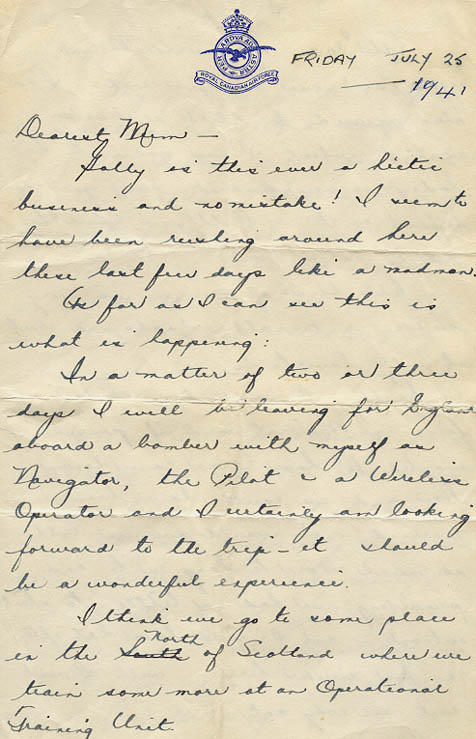 PER ARDVA AD ASTRA
ROYAL CANADIAN AIR FORCE
FRIDAY JULY 25
1941
Dearest Mum —
Golly is this ever a hectic
business and no mistake! I seem to
have been rushing around here
these last few days like a madman.
As far as I can see this is
what is happening:
In a matter of two or three
days I will be leaving for England
aboard a bomber with myself as
Navigator, the Pilot & a Wireless
Operator and I certainly am looking
forward to the trip - it should
be a wonderful experience.
I think we go to some place
in the South north of Scotland where we
train some more at an Operational
Training Unit.